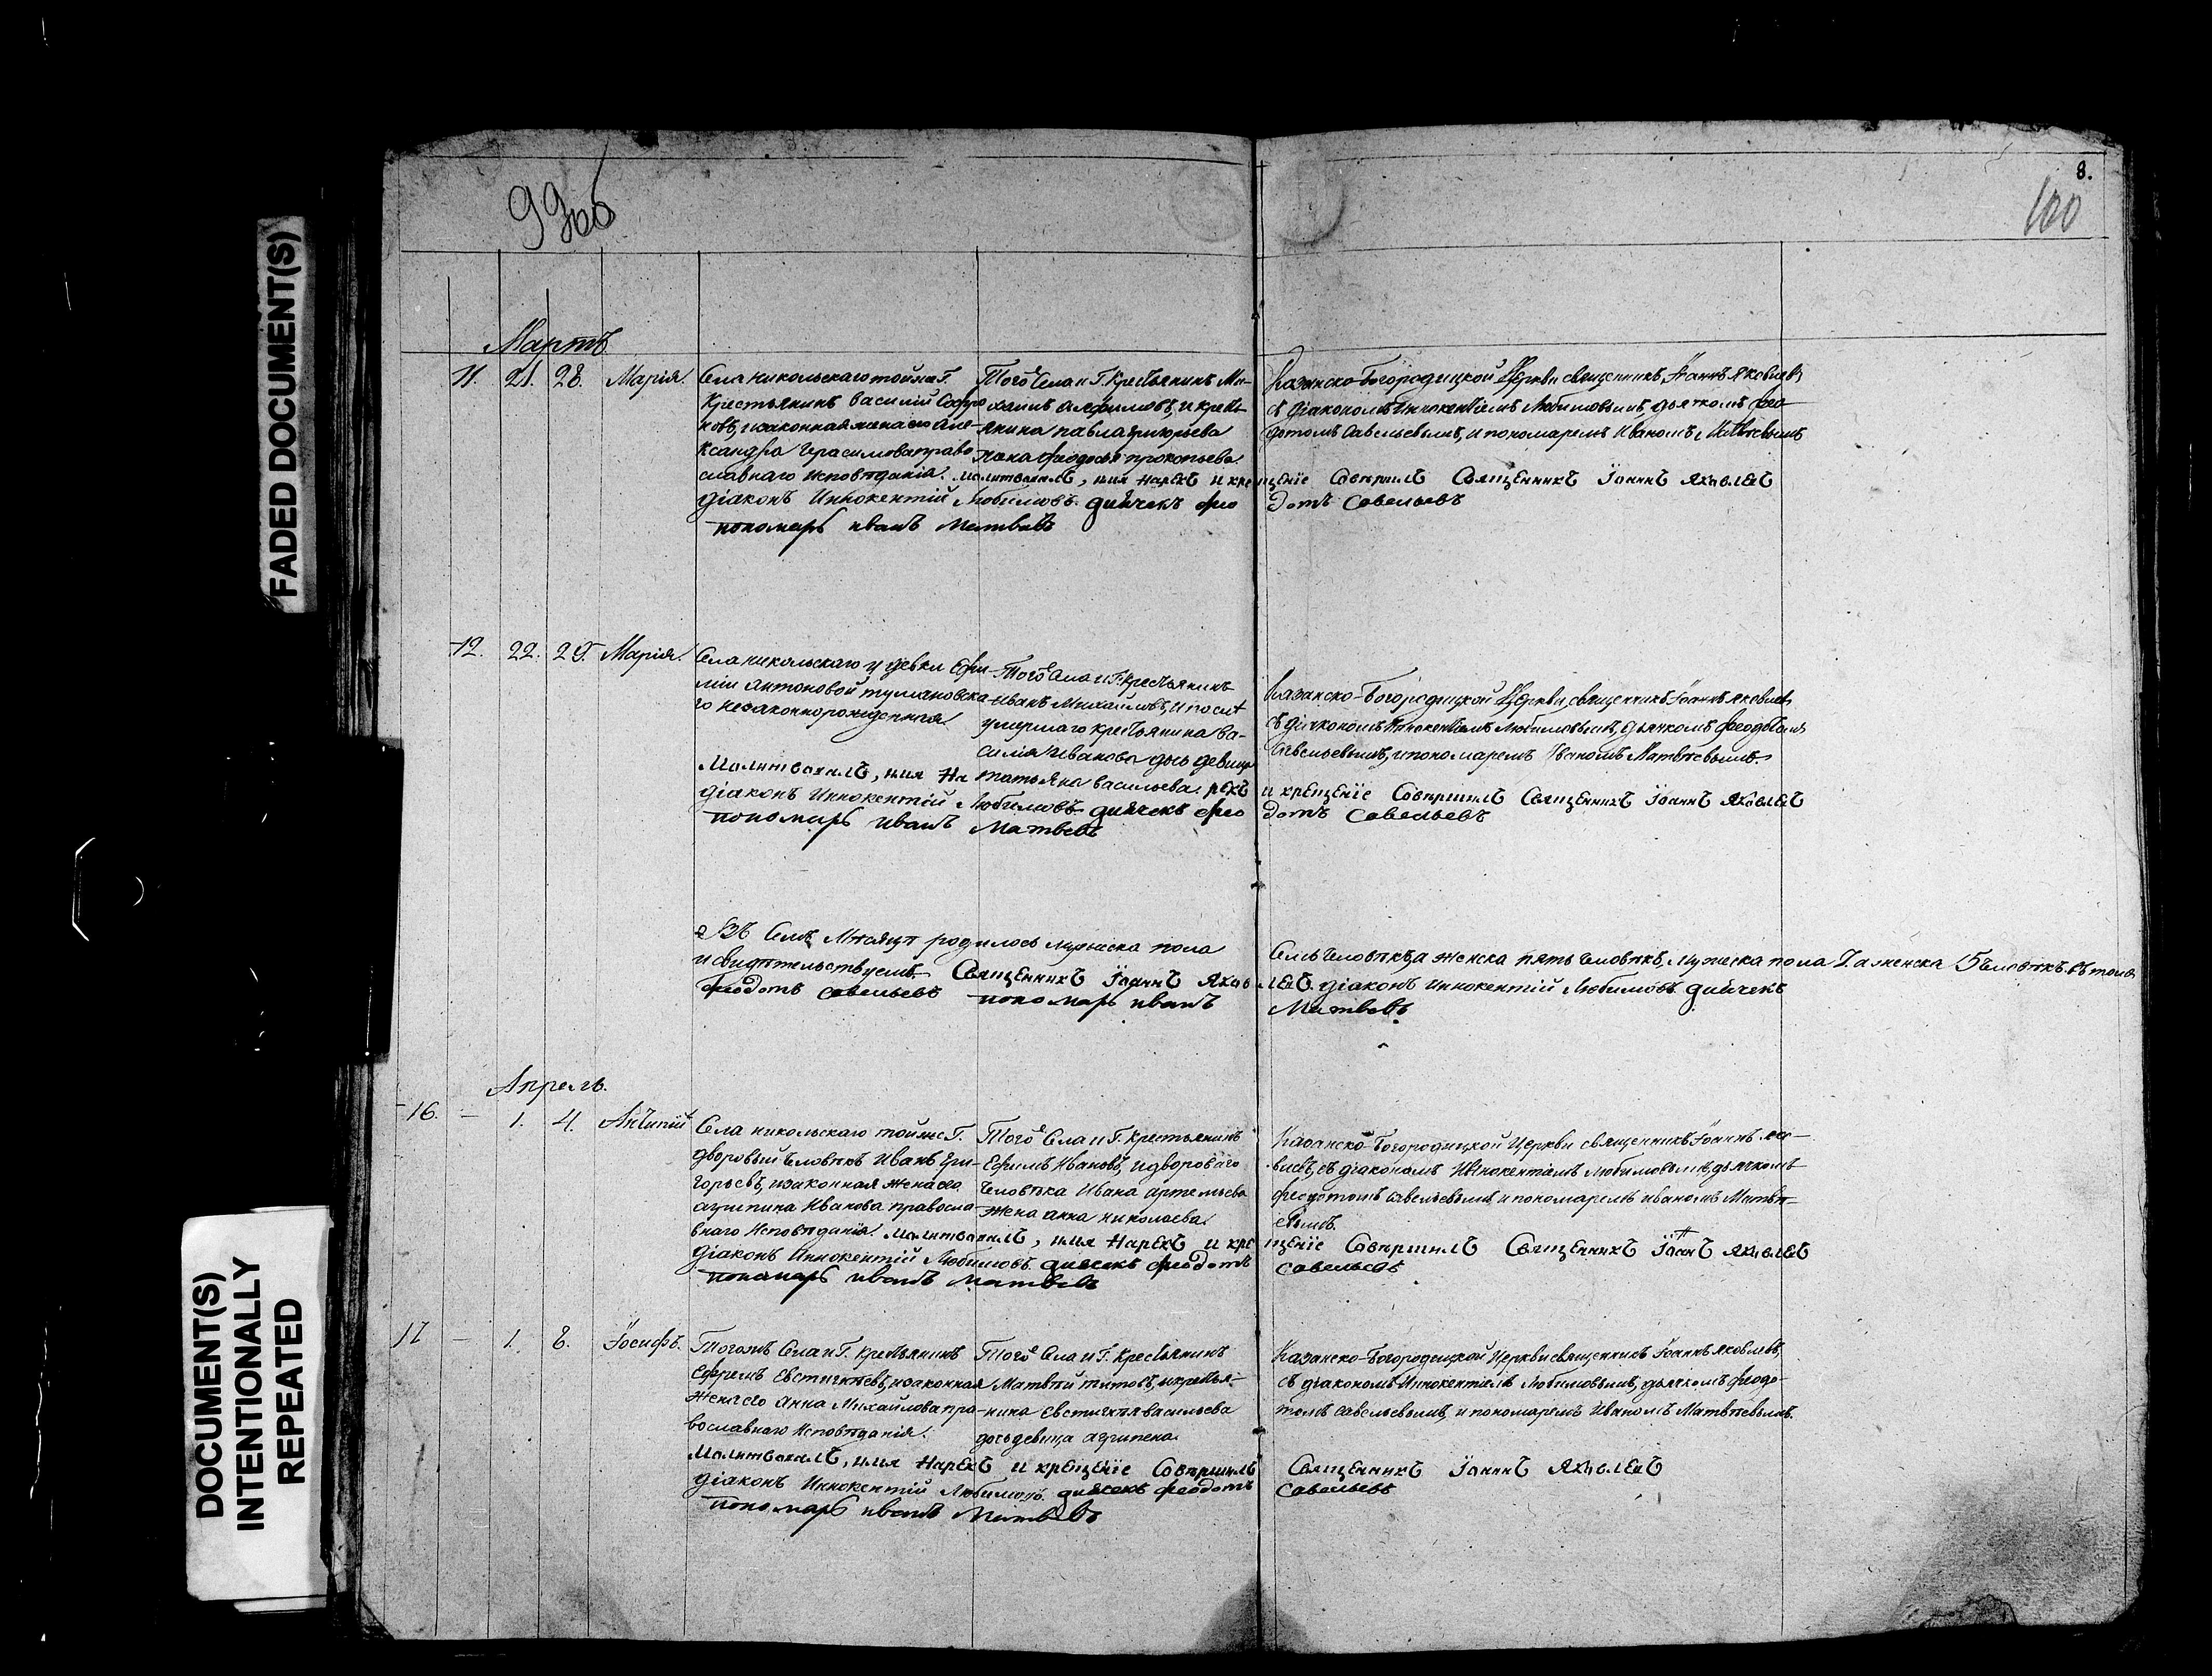 FADED DOCUMENT(S)
DOCUMENT(S)
INTENTIONALLY
REPEATED
99об
8.
100
Мартъ
11. 21. 28. Марія.
Села никольскаго тойже Г.
Крестьянинъ василій Софро
новъ, и законная жена его Але-
ксандра Герасимова право
славнаго исповѣданія.
Того Села и Г. Крестьянинъ Ми-
хаилъ , и кресть
янина павла григорьева
жена феодосья прокопьева
Казанско-Богородицкой Церкви священникъ Іоаннъ Яковлевъ
съ діакономъ Иннокентіемъ Любимовымъ, дьячкомъ фео
дотомъ Савельевымъ, и пономаремъ Иваномъ Матвѣевымъ
Молитвовалъ, имя Нарекъ и крещеніе Совершилъ Священникъ Іоаннъ Яковлевъ
діаконъ Иннокентій Любимовъ. дьячекъ фео дотъ Савельевъ
пономарь иванъ Матвевъ
12. 22. 29. Марія.
Села никольскаго у девки Ефи-
міи Антоновой
го незаконнорожденная
Того Села и Г. Крестьянинъ
Иванъ Михайловъ, и
умершаго крестьянина ва-
силія Иванова дочь девица
татьяна васильева
Казанско-Богородицкой Церкви, священникъ Іоаннъ Яковлевъ
съ діакономъ Иннокентіемъ Любимовымъ, дьячкомъ феодотомъ
Савельевымъ, и пономаремъ Иваномъ Матвѣевымъ
Молитвовалъ, имя На рекъ и крещеніе Совершилъ Священникъ Іоаннъ Яковлевъ
діаконъ Иннокентій Любимовъ. дьячекъ фео дотъ Савельевъ
пономарь иванъ Матвевъ
Въ Семъ Мѣсяцѣ родилось мужеска пола Семь Человѣкъ, а женска пять Человѣкъ, мужеска пола 7. а женска 5 человѣкъ. въ томъ
и свидѣтельствуемъ. Священникъ Іоаннъ Яковлевъ. діаконъ Иннокентій Любимовъ. дьячекъ
феодотъ Савельевъ пономарь иванъ Матвевъ
Апрель.
16. — 1. 4. Антипій
Села никольскаго тойже Г.
дворовый Человѣкъ Иванъ Гри-
горьевъ, и законная жена его
агрипина Иванова правосла-
внаго исповѣданія.
Того Села и Г. Крестьянинъ
Ефимъ Ивановъ, и дворового
Человѣка Ивана артемьева
жена анна николаева
Казанско-Богородицкой Церкви священникъ Іоаннъ яко-
влевъ, съ діакономъ Иннокентіемъ Любимовымъ, дьячкомъ
феодотомъ Савельевымъ и пономаремъ иваномъ Матвѣ-
евымъ.
Молитвовалъ, имя Нарекъ и крещеніе Совершилъ Священникъ Іоаннъ Яковлевъ
діаконъ Иннокентій Любимовъ. дьячекъ феодотъ Савельевъ
пономарь иванъ Матвевъ
17 — 1. 8. Іосифъ.
Тогожъ Села и Г. Крестьянинъ
Ефремъ Евстигнѣевъ, и законная
жена его Анна Михайлова пра-
вославнаго исповѣданія.
Того Села и Г. Крестьянинъ
Матвѣй титовъ, и крестья-
нина Евстигнѣя васильева
дочь девица агрипена
Казанско-Богородицкой Церкви священникъ Іоаннъ Яковлевъ,
съ діакономъ Иннокентіемъ Любимовымъ, дьячкомъ феодо-
томъ Савельевымъ, и пономаремъ Иваномъ Матвѣевымъ.
Молитвовалъ, имя Нарекъ и крещеніе Совершилъ Священникъ Іоаннъ Яковлевъ
діаконъ Иннокентій Любимовъ. дьячекъ феодотъ Савельевъ
пономарь иванъ Матвевъ